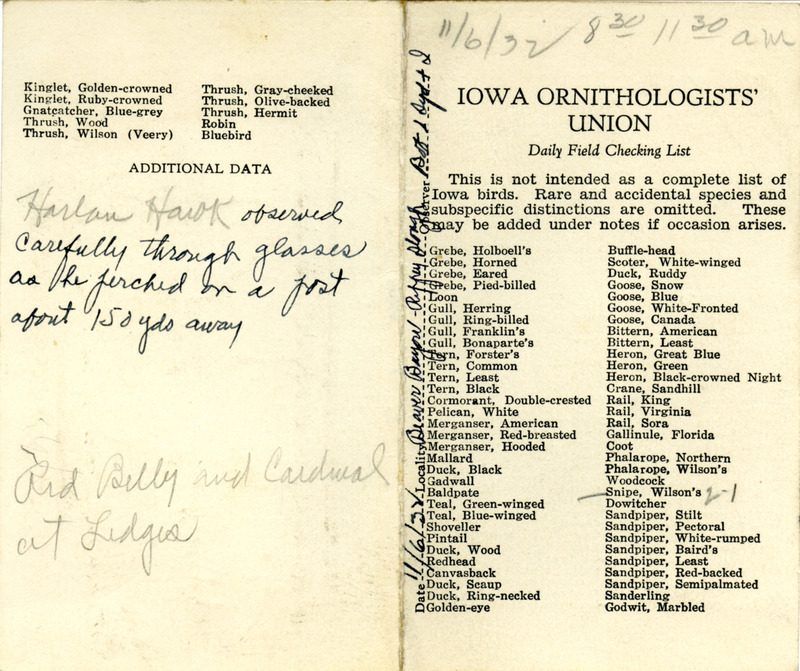 Kinglet, Golden-crowned
Kinglet, Ruby-crowned
Gnatcatcher, Blue-grey
Thrush, Wood
Thrush, Wilson (Veery)
Thrush, Gray-cheeked
Thrush, Olive-backed
Thrush, Hermit
Robin
Bluebird
ADDITIONAL DATA
Harlan Hawk observed
carefully through glasses
as he perched on a post
about 150 yds away
Red Belly and Cardinal
at Ledges
11/6/32 8 30 11 30 am
IOWA ORNITHOLOGISTS'
UNION
Daily Field Checking List
This is not intended as a complete list of
Iowa birds. Rare and accidental species and
subspecific distinctions are omitted. These
may be added under notes if occasion arises.
Grebe, Holboell's
Grebe, Horned
Grebe, Eared
Grebe, Pied-billed
Loon
Gull, Herring
Gull, Ring-billed
Gull, Franklin's
Gull, Bonaparte's
Tern, Forster's
Tern, Common
Tern, Least
Tern, Black
Cormorant, Double-crested
Pelican, White
Merganser, American
Merganser, Red-breasted
Merganser, Hooded
Mallard
Duck, Black
Gadwall
Baldpate
Teal, Green-winged
Teal, Blue-winged
Shoveller
Pintail
Duck, Wood
Redhead
Canvasback
Duck, Scaup
Duck, Ring-necked
Golden-eye
Buffle-head
Scoter, White-winged
Duck, Ruddy
Goose, Snow
Goose, Blue
Goose, White-Fronted
Goose, Canada
Bittern, American
Bittern, Least
Heron, Great Blue
Heron, Green
Heron, Black-crowned Night
Crane, Sandhill
Rail, King
Rail, Virginia
Rail, Sora
Gallinule, Florida
Coot
Phalarope, Northern
Phalarope, Wilson's
Woodcock
Snipe, Wilson's 2-1
Dowitcher
Sandpiper, Stilt
Sandpiper, Pectoral
Sandpiper, White-rumped
Sandpiper, Baird's
Sandpiper, Least
Sandpiper, Red-backed
Sandpiper, Semipalmated
Sanderling
Godwit, Marbled
Date 11/6/32 Locality Beaver Bayou Observer